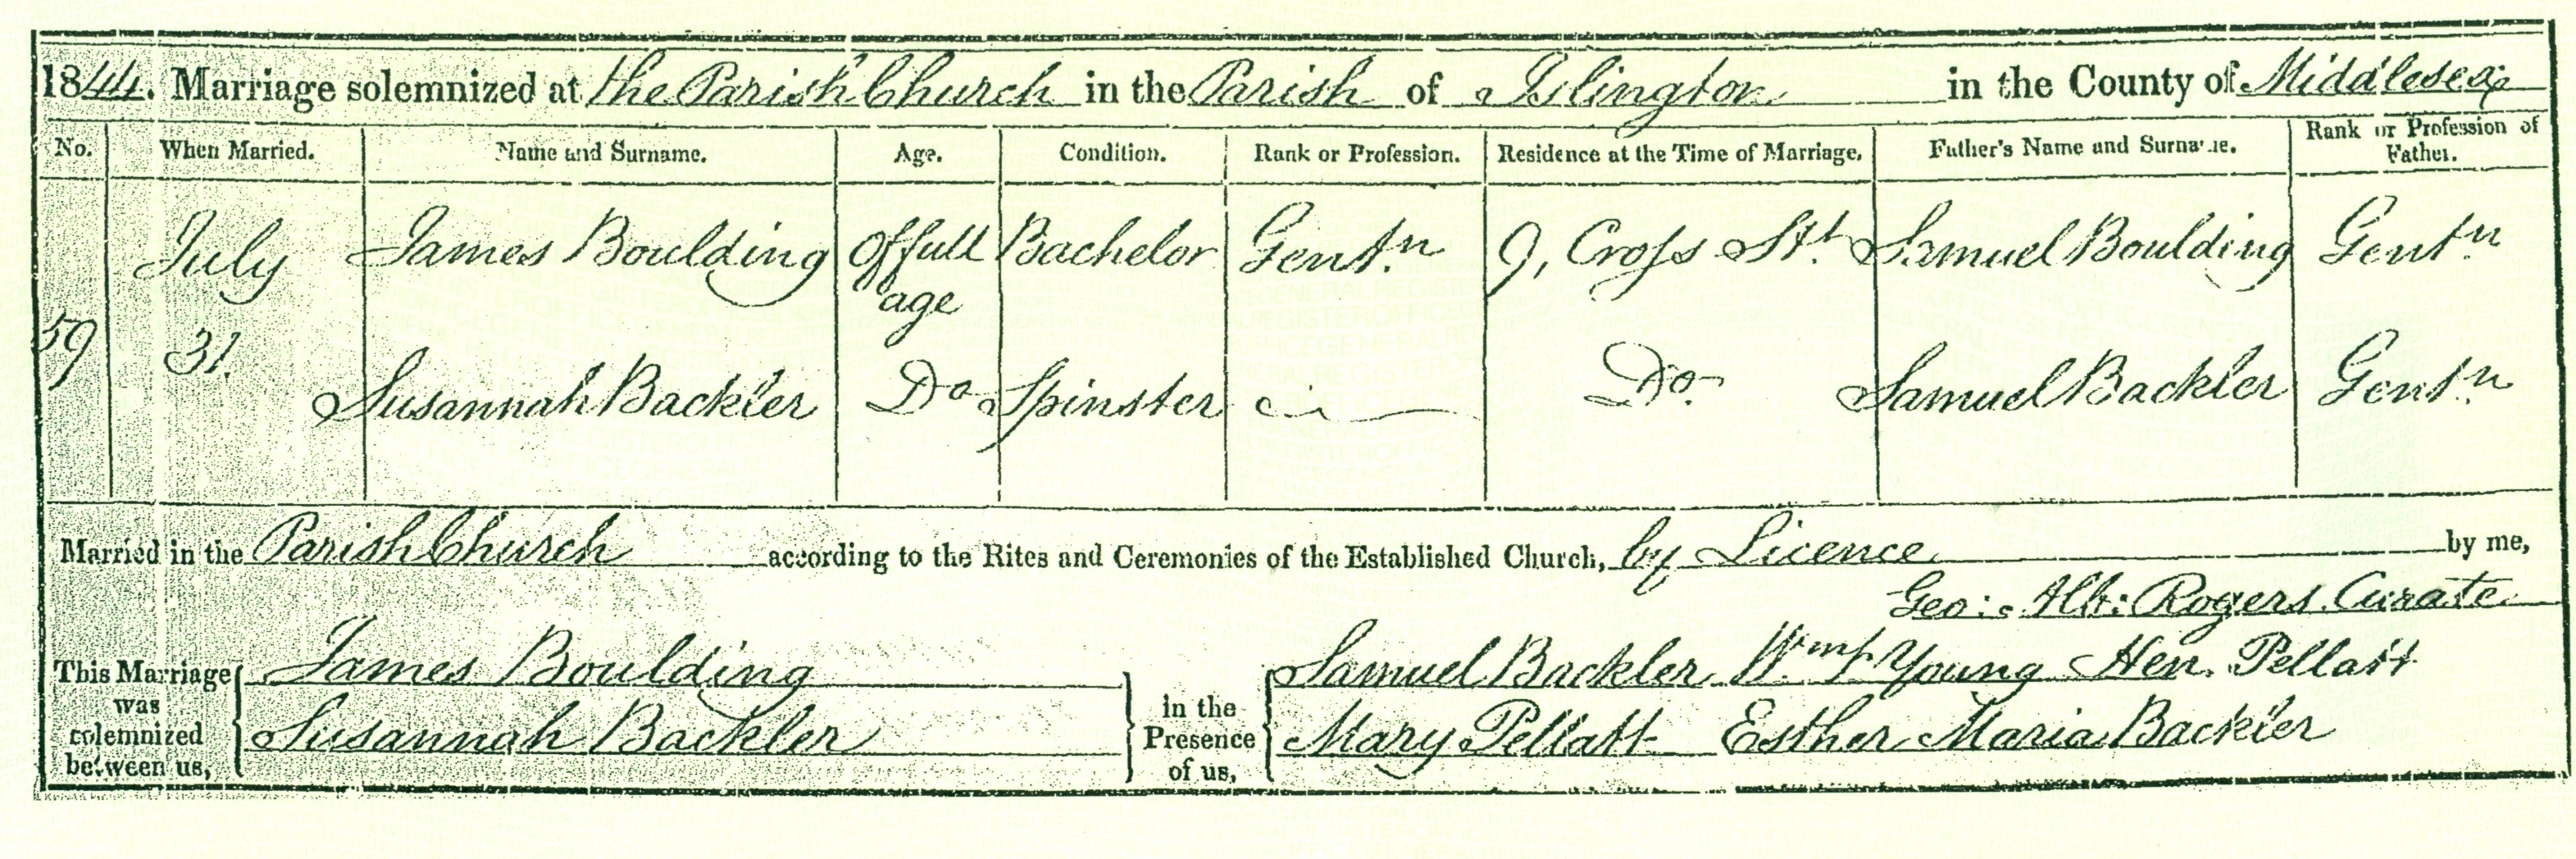 1844. Marriage solemnized at the Parish Church in the Parish of Islington in the County of Middlesex
No. When Married. Name and Surname. Age. Condition. Rank or Profession. Residence at the Time of Marriage. Father's Name and Surname. Rank or Profession of Father.
July James Boulding Of full age Bachelor Gentn 9, Cross Stt Samuel Boulding Gentn
59 31. Susannah Backler Do Spinster Do. Samuel Backler Gentn
Married in the Parish Church according to the Rites and Ceremonies of the Established Church, by Licence by me,
Geo: Alb: Rogers. Curate
This Marriage was solemnized between us, James Boulding in the Presence of us, Samuel Backler Wm Young Hen. Pellatt
Susannah Backler Mary Pellatt Esther Maria Backler